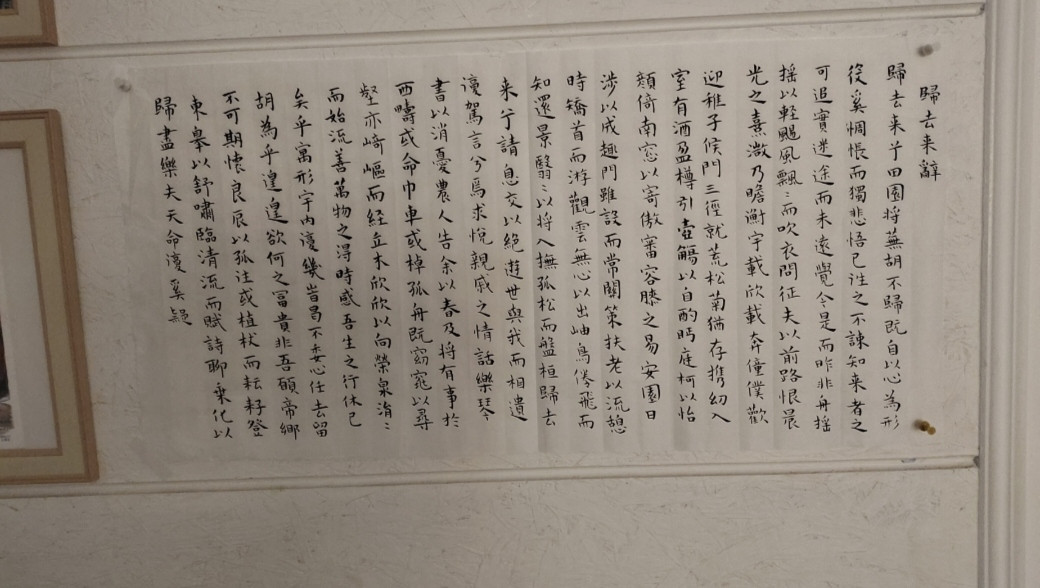 歸去来辭
歸去来兮田園将蕪胡不歸既自以心為形
役奚惆悵而獨悲悟已往之不諫知来者之
可追實迷途而未遠覺今是而昨非舟摇
摇以軽颺風飄〻而吹衣問征夫以前路恨晨
光之熹微乃瞻衡宇載欣載奔僮僕歡
迎稚子候門三徑就荒松菊猶存携幼入
室有酒盈樽引壺觴以自酌眄庭柯以怡
顏倚南窓以寄傲審容膝之易安園日
涉以成趣門雖設而常關策扶老以流憩
時矯首而游觀雲無心以出岫鳥倦飛而
知還景翳〻以将入撫孤松而盤桓歸去
来兮請息交以絕遊世與我而相遺
復駕言兮焉求悅親戚之情話樂琴
書以消憂農人告余以春及将有事於
西疇或命巾車或棹孤舟既窈窕以尋
壑亦崎嶇而経丘木欣欣以向榮泉涓〻
而始流善萬物之得時感吾生之行休已
矣乎寓形宇內復幾时曷不委心任去留
胡為乎遑遑欲何之富貴非吾願帝鄉
不可期懷良辰以孤往或植杖而耘耔登
東皋以舒嘯臨清流而賦詩聊乗化以
歸盡樂夫天命復奚疑